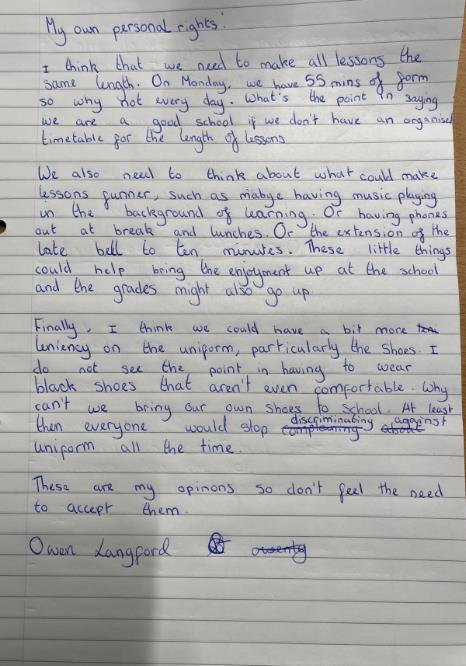 My own personal rights:
I think that we need to make all lessons the
same length. On Monday, we have 55 mins of form
so why not every day. What's the point in saying
we are a good school if we don't have an organised
timetable for the length of lessons
We also need to think about what could make
lessons funner, such as mabye having music playing
in the background of learning. Or having phones
out at break and lunches. Or the extension of the
late bell to ten minutes. These little things
could help bring the enjoyment up at the school
and the grades might also go up
Finally, I think we could have a bit more
leniency on the uniform, particularly the shoes. I
do not see the point in having to wear
black shoes that aren't even comfortable. Why
can't we bring our own shoes to school. At least
then everyone would stop discriminating against
complaining about
uniform all the time.
These are my opinons so don't feel the need
to accept them.
Owen Langford